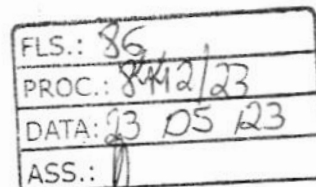 FLS.: 86
PROC.: 8442/23
DATA: 23 05 23
ASS.: